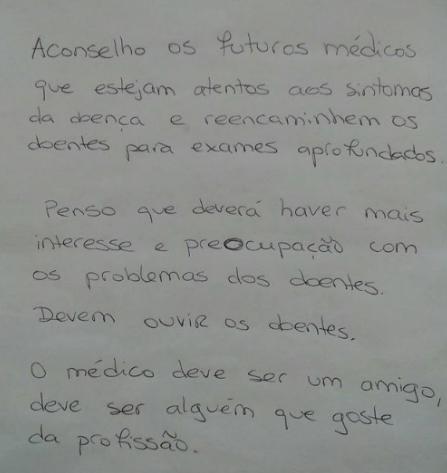 Aconselho os futuros médicos
que estejam atentos aos sintomas
da doença e reencaminhem os
doentes para exames aprofundados.
Penso que deverá haver mais
interesse e preocupação com
os problemas dos doentes.
Devem ouvir os doentes.
O médico deve ser um amigo,
deve ser alguém que goste
da profissão.